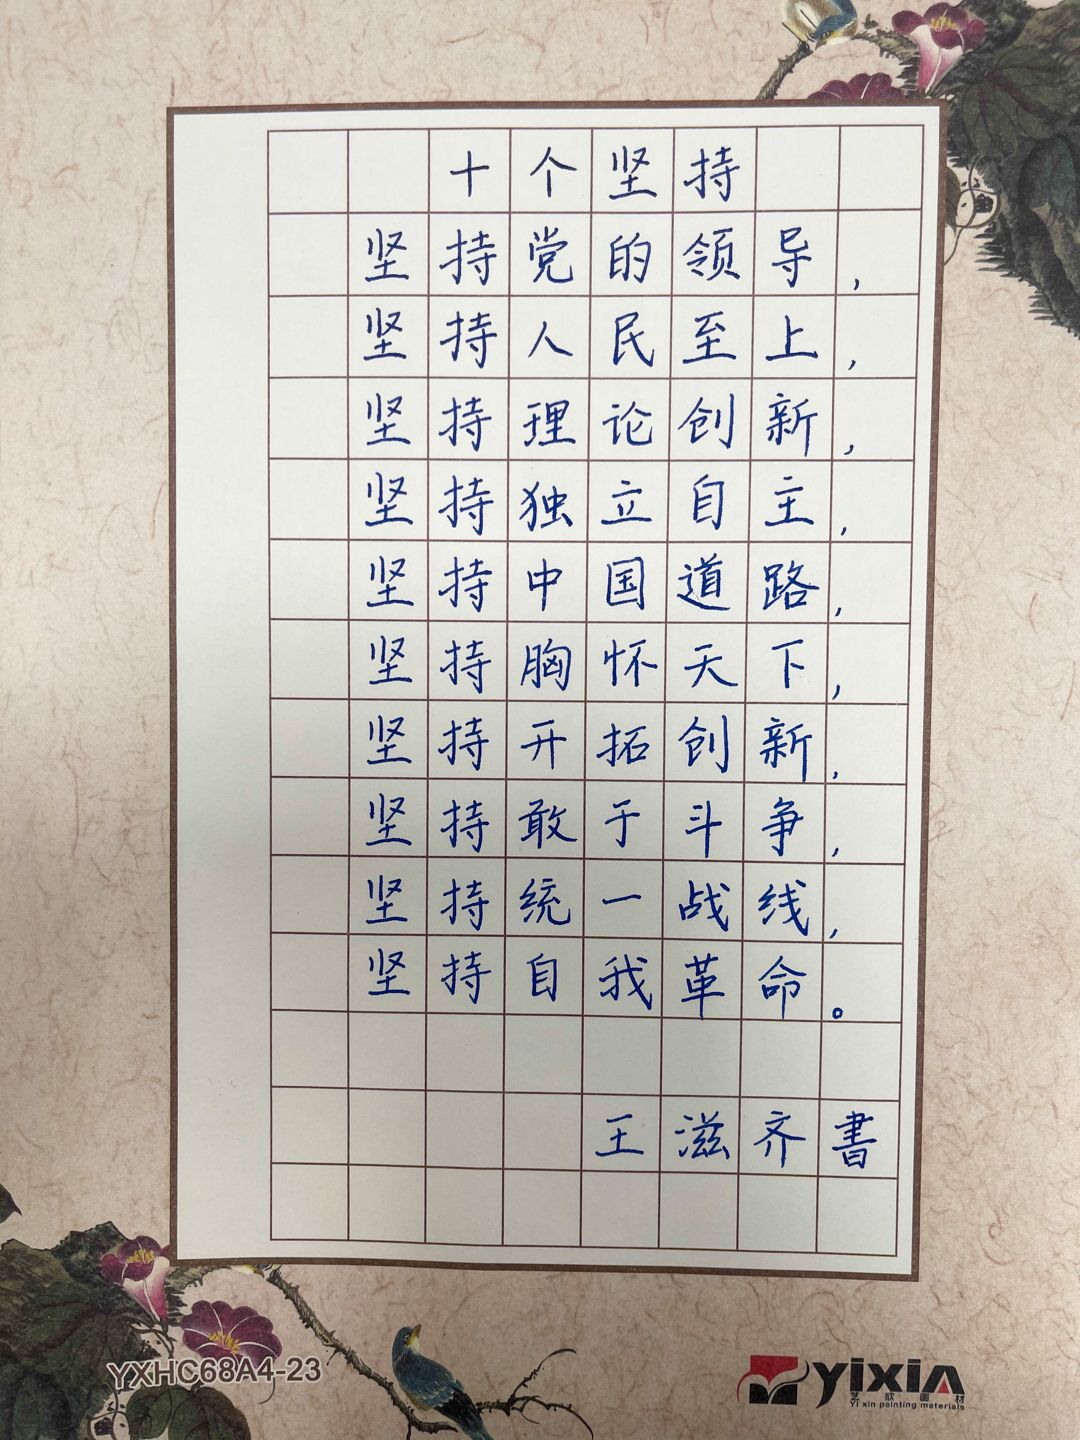 十个坚持
坚持党的领导，
坚持人民至上，
坚持理论创新，
坚持独立自主，
坚持中国道路，
坚持胸怀天下，
坚持开拓创新，
坚持敢于斗争，
坚持统一战线，
坚持自我革命。
王滋齐書
YXHC68A4-23
yixin
艺欣画材
Yi xin painting materials